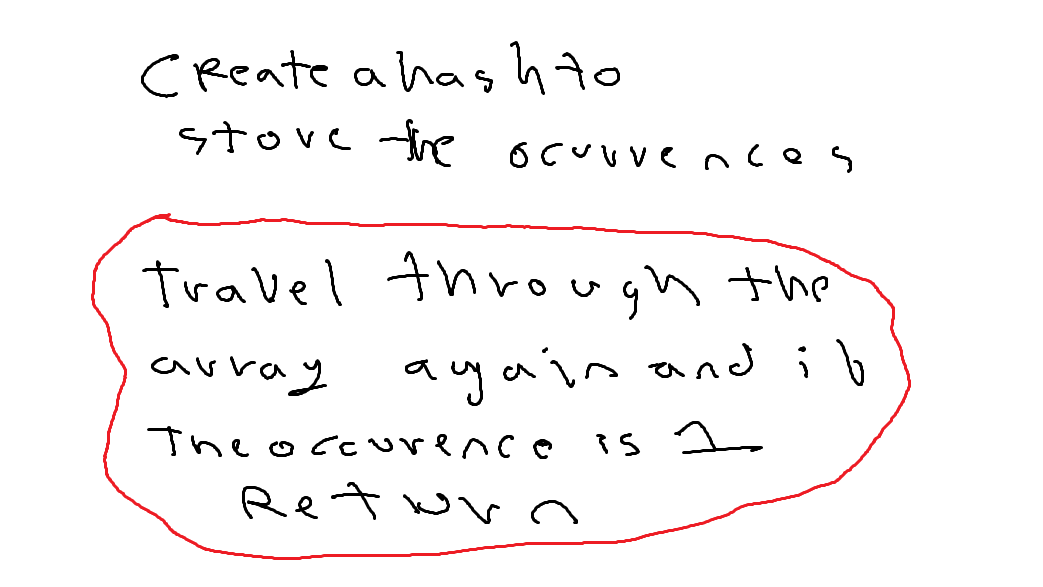 Create a hash to
store the ocurrences
Travel through the
array again and if
The occurence is 1
Return